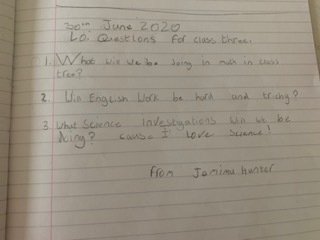 30th June 2020
L.O. Questions for class three.
1. What will we be doing in math in class
tree?
2. Will English Work be hard and tricky?
3. What Science investigations will we be
doing? cause I love science!
From Jemima hunter